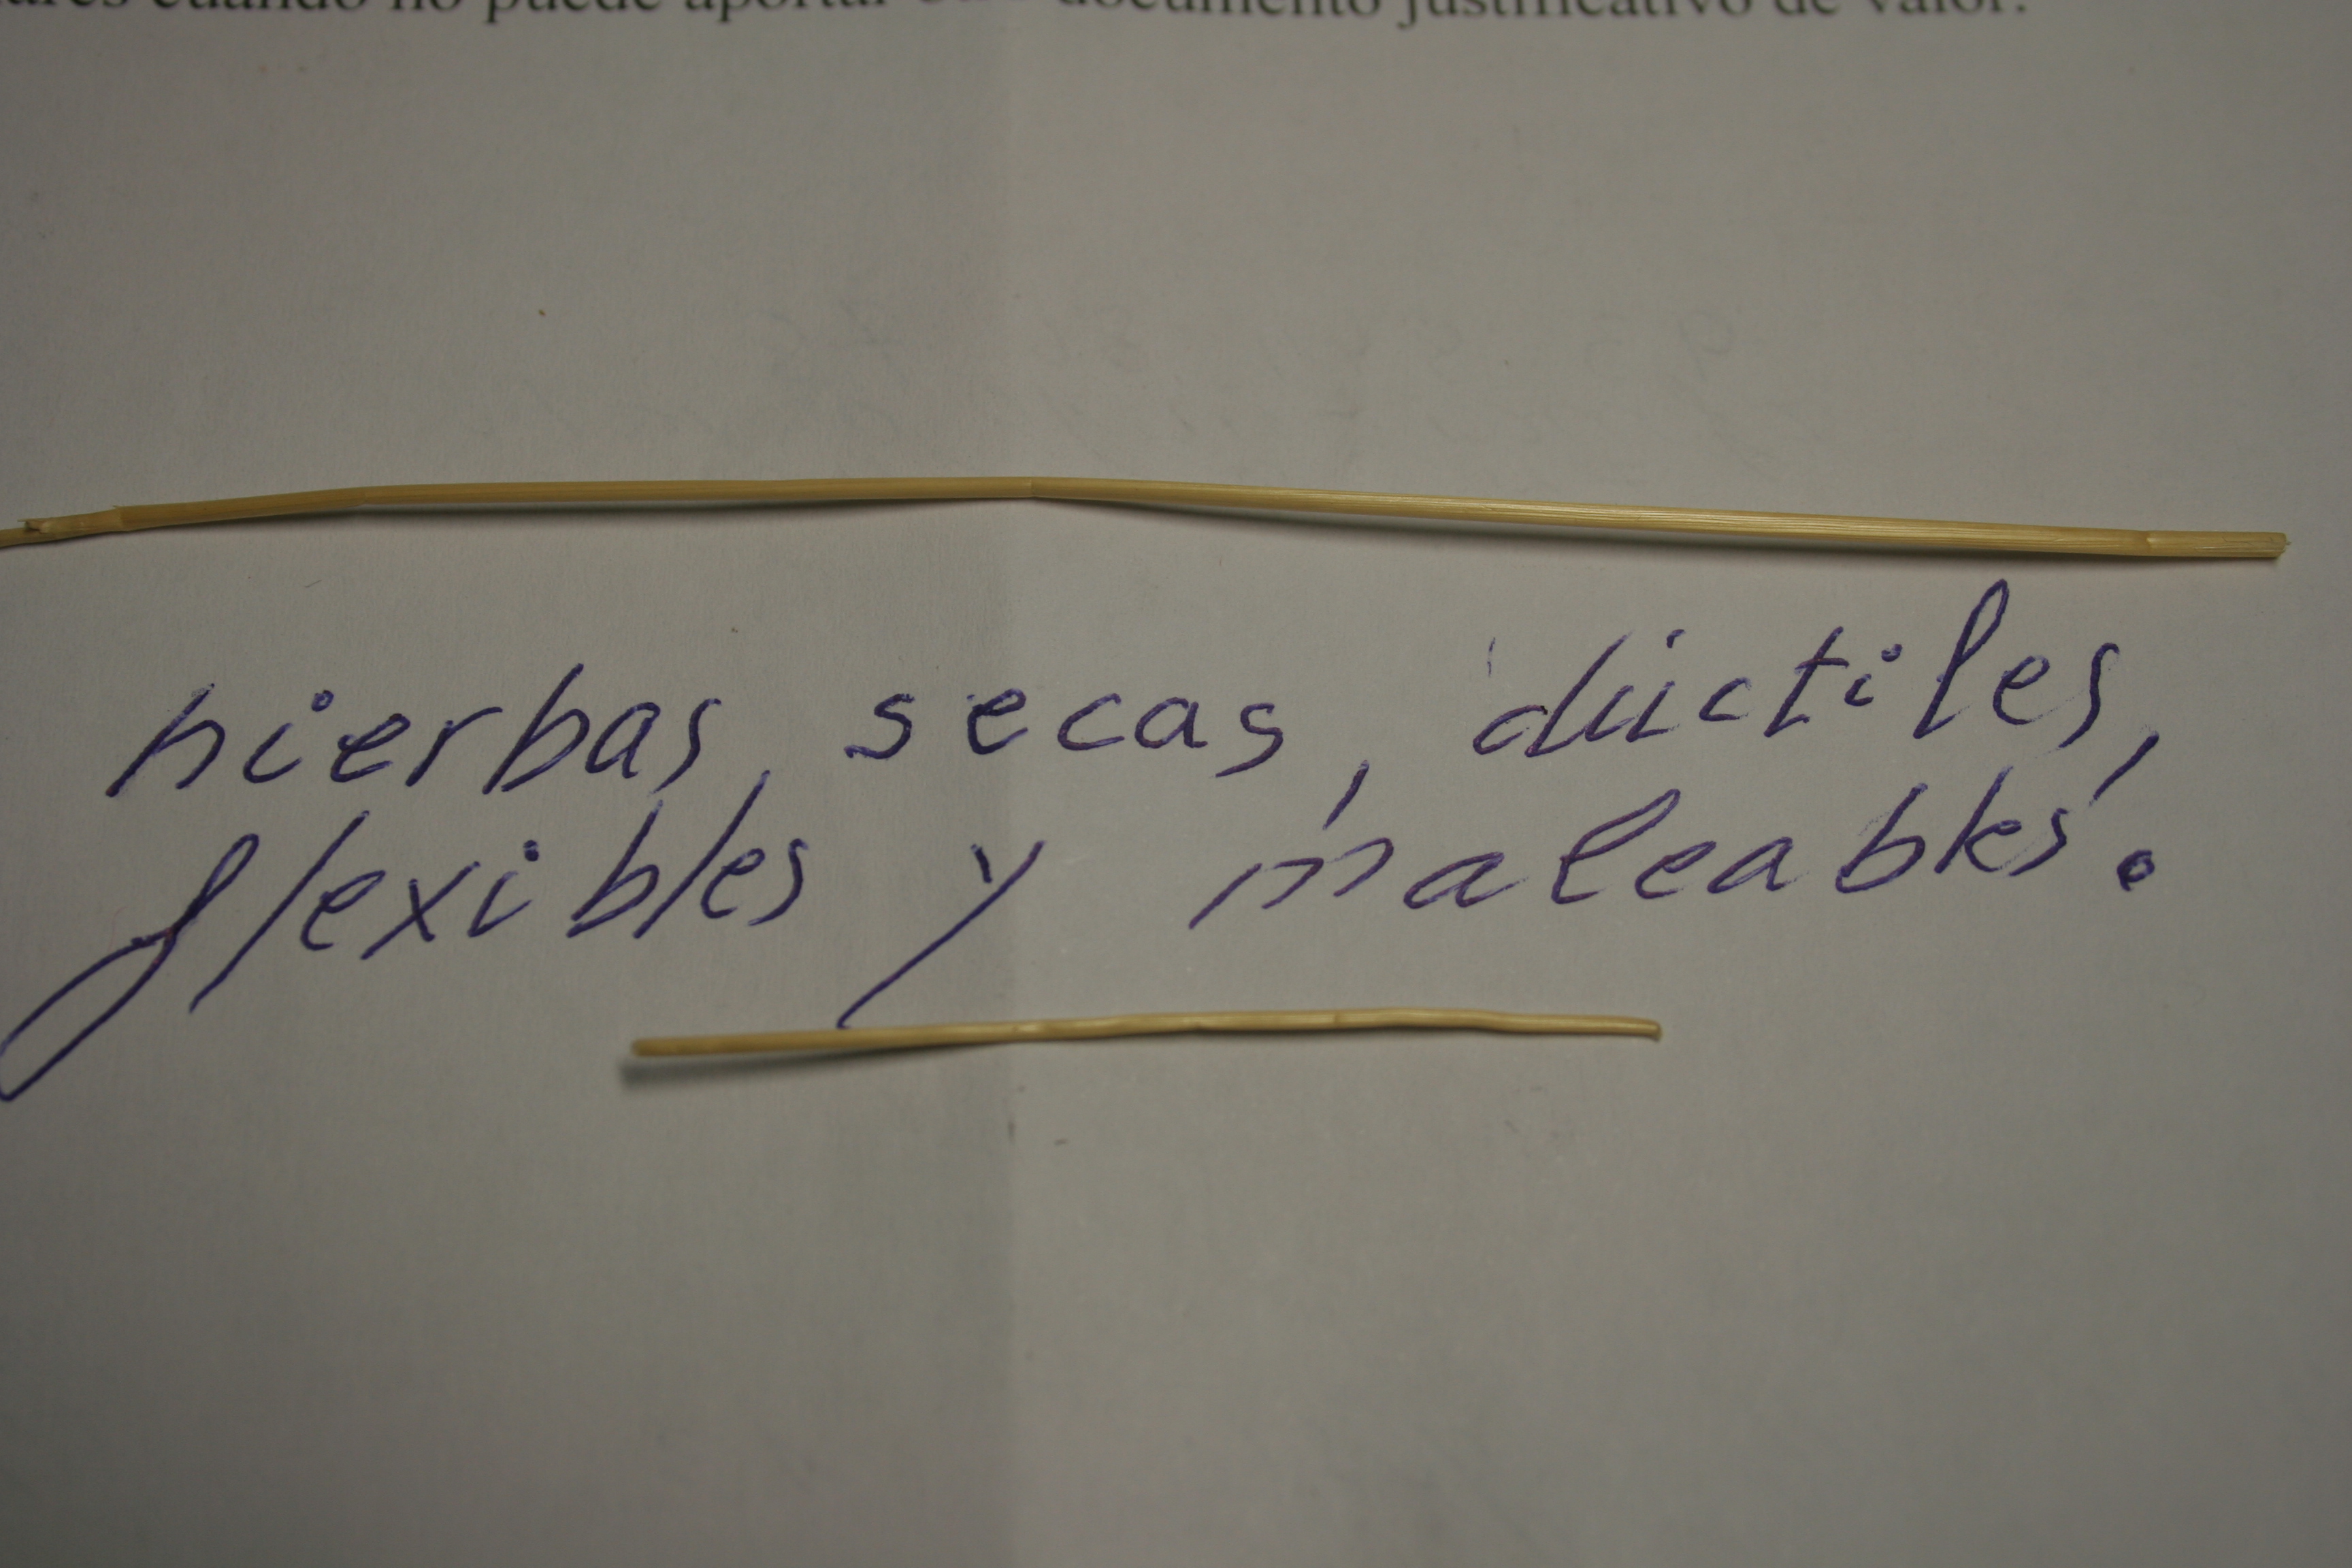 cuando no puede aportar otro documento justificativo de valor.
hierbas secas, dúctiles,
flexibles y maleables.